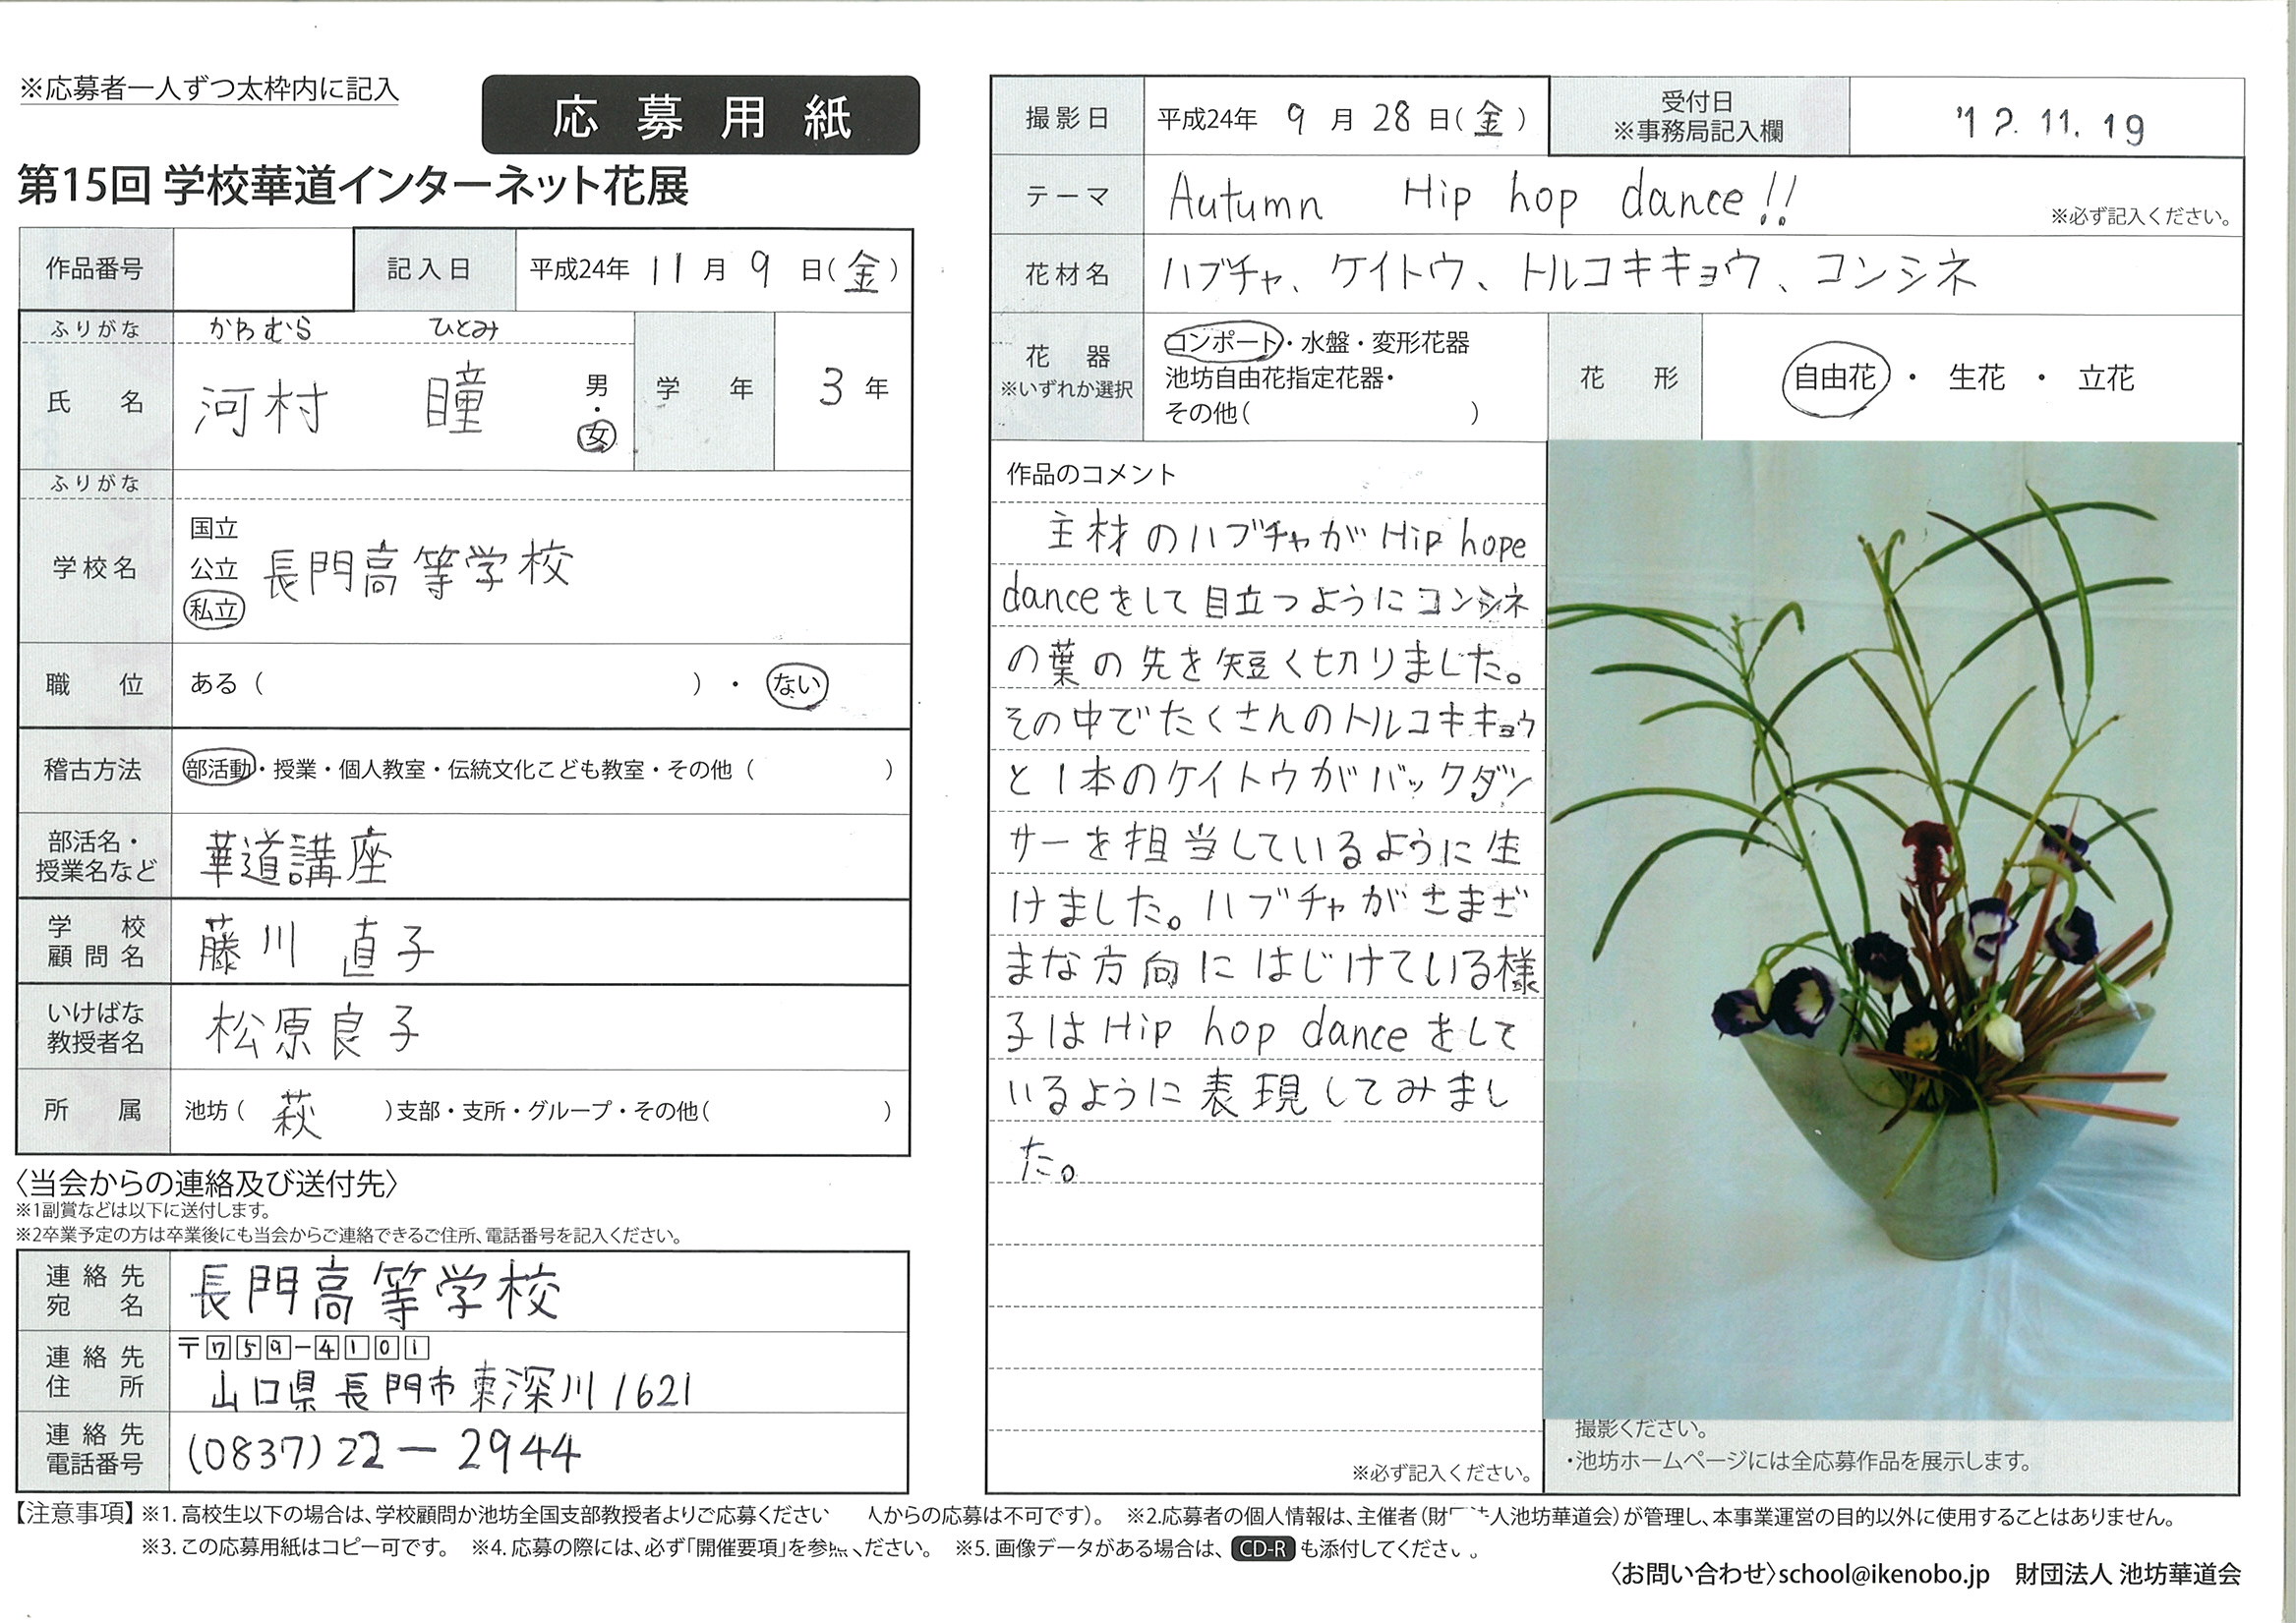 ※応募者一人ずつ太枠内に記入
応募用紙
第15回 学校華道インターネット花展
作品番号
記入日 平成24年 11月 9日(金)
ふりがな かわむら ひとみ
氏名 河村 瞳 男・女
学年 3年
ふりがな
学校名 国立 公立 私立 長門高等学校
職位 ある( )・ない
稽古方法 部活動・授業・個人教室・伝統文化こども教室・その他( )
部活名・授業名など 華道講座
学校顧問名 藤川 直子
いけばな教授者名 松原良子
所属 池坊( 萩 )支部・支所・グループ・その他( )
〈当会からの連絡及び送付先〉
※1副賞などは以下に送付します。
※2卒業予定の方は卒業後にも当会からご連絡できるご住所、電話番号を記入ください。
連絡先宛名 長門高等学校
連絡先住所 〒759-4101
山口県長門市東深川1621
連絡先電話番号 (0837)22-2944
撮影日 平成24年 9月28日(金)
受付日 ※事務局記入欄 '12.11.19
テーマ Autumn Hip hop dance!! ※必ず記入ください。
花材名 ハブチャ、ケイトウ、トルコキキョウ、コンシネ
花器 ※いずれか選択
コンポート・水盤・変形花器
池坊自由花指定花器・
その他( )
花形 自由花・生花・立花
作品のコメント
主材のハブチャがHip hope
danceをして目立つようにコンシネ
の葉の先を短く切りました。
その中でたくさんのトルコキキョウ
と1本のケイトウがバックダン
サーを担当しているように生
けました。ハブチャがさまざ
まな方向にはじけている様
子はHip hop danceをして
いるように表現してみまし
た。
※必ず記入ください。
撮影ください。
・池坊ホームページには全応募作品を展示します。
【注意事項】※1.高校生以下の場合は、学校顧問か池坊全国支部教授者よりご応募ください 人からの応募は不可です)。 ※2.応募者の個人情報は、主催者(財 人池坊華道会)が管理し、本事業運営の目的以外に使用することはありません。
※3.この応募用紙はコピー可です。 ※4.応募の際には、必ず「開催要項」を参照ください。 ※5.画像データがある場合は、CD-Rも添付してください。
〈お問い合わせ〉school@ikenobo.jp 財団法人 池坊華道会